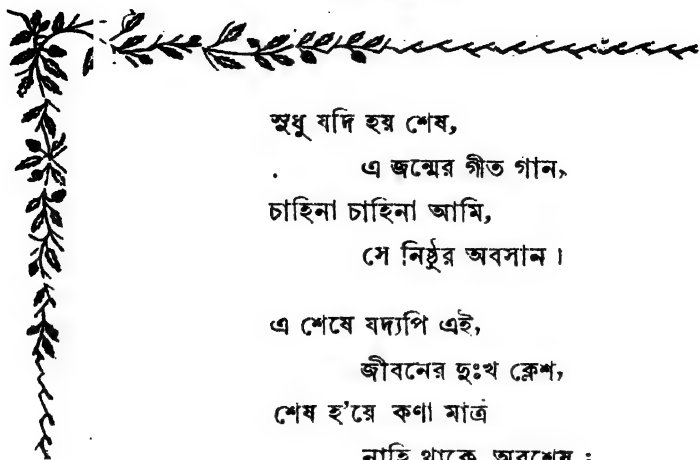 সুধু যদি হয় শেষ,
এ জন্মের গীত গান,
চাহিনা চাহিনা আমি,
সে নিষ্ঠুর অবসান ।
এ শেষে যদ্যপি এই,
জীবনের দুঃখ ক্লেশ,
শেষ হ'য়ে কণা মাত্র
নাহি থাকে অবশেষ ;